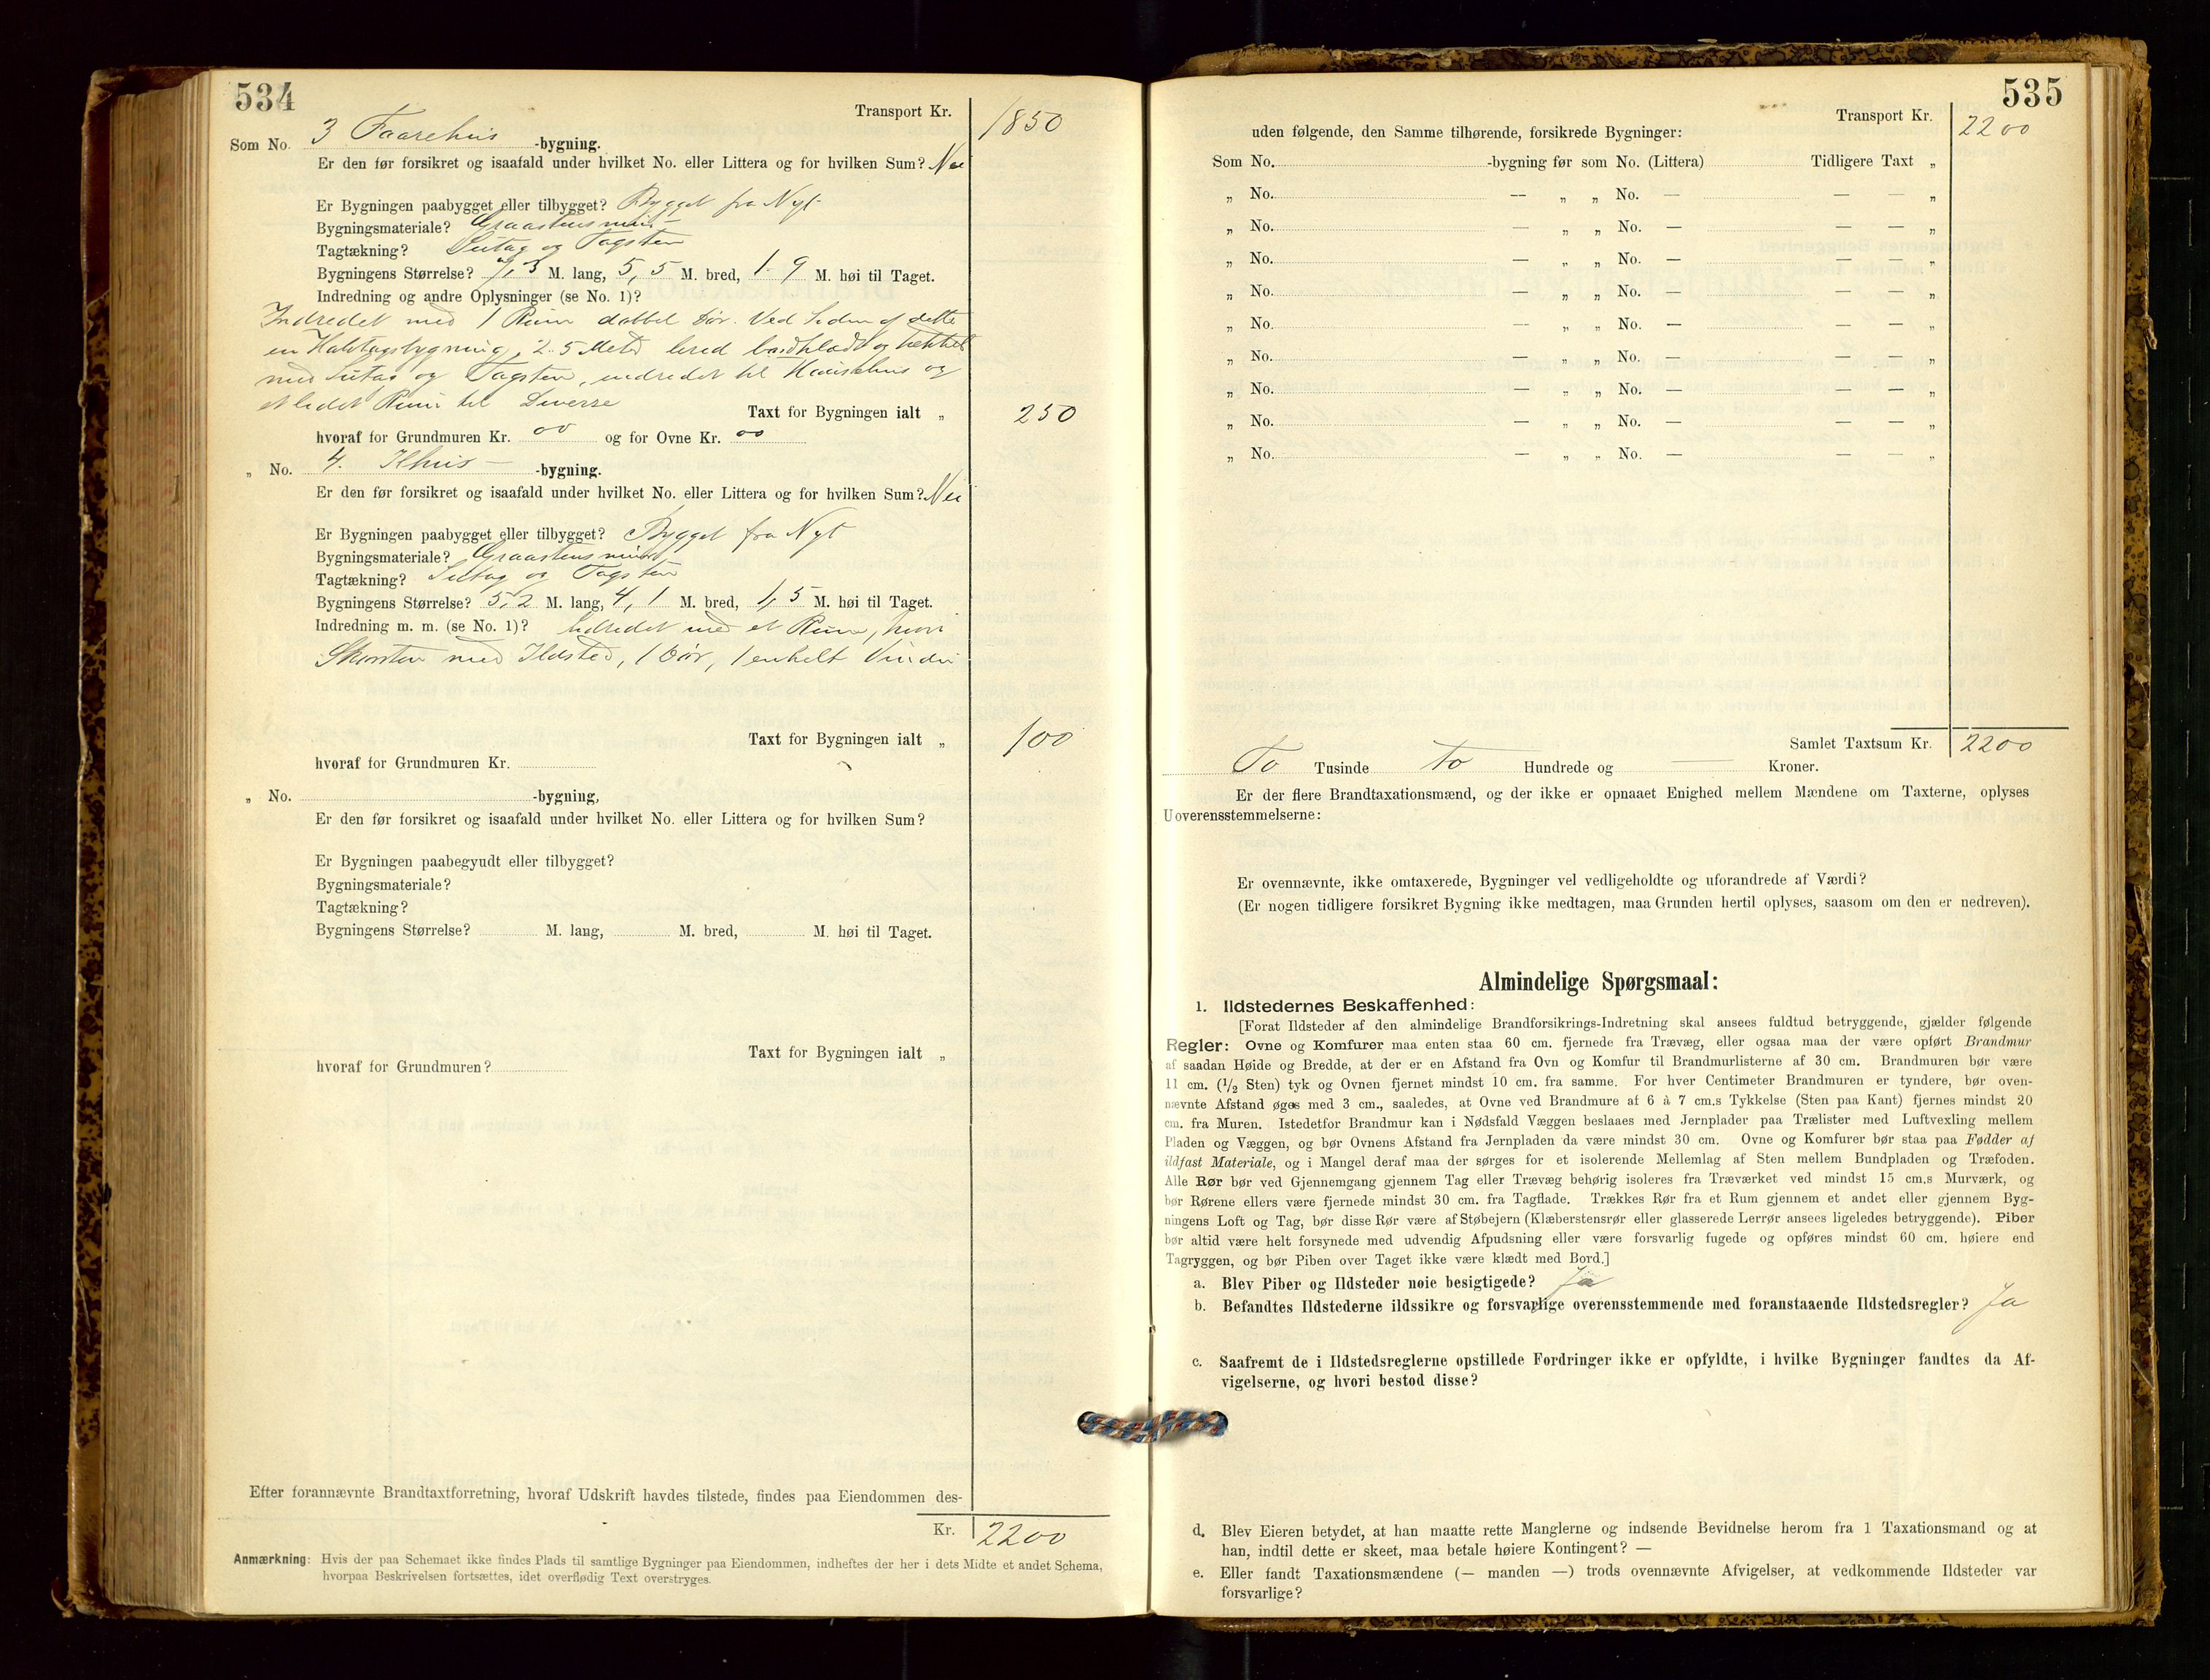 534
Transport Kr. 1850
Som No. 3 Faarehus -bygning.
Er den før forsikret og isaafald under hvilket No. eller Littera og for hvilken Sum? Nei
Er Bygningen paabygget eller tilbygget? Bygget fra Nyt
Bygningsmateriale? Graastensmur
Tagtækning? Sutag og Tagsten
Bygningens Størrelse? 7,3 M. lang, 5,5 M. bred, 1.9 M. høi til Taget.
Indredning og andre Oplysninger (se No. 1)?
Indredet med 1 Rum dobbel Dør. Ved Siden af dette
en Halvtagsbygning, 2.5 Meter bred bordklædt og tækket
med Sutag og Tagsten, indredet til og
et lidet Rum til Diverse
Taxt for Bygningen ialt „ 250
hvoraf for Grundmuren Kr. 00 og for Ovne Kr. 00
„ No. 4. Ilhus -bygning.
Er den før forsikret og isaafald under hvilket No. eller Littera og for hvilken Sum? Nei
Er Bygningen paabygget eller tilbygget? Bygget fra Nyt
Bygningsmateriale? Graastensmur
Tagtækning? Sutag og Tagsten
Bygningens Størrelse? 5,2 M. lang, 4,1 M. bred, 1,5 M. høi til Taget.
Indredning m. m. (se No. 1)? Indredet med et Rum, hvori
Skorsten med Ildsted, 1 Dør, 1 enkelt Vindu
Taxt for Bygningen ialt „ 100
hvoraf for Grundmuren Kr.
„ No. -bygning,
Er den før forsikret og isaafald under hvilket No. eller Littera og for hvilken Sum?
Er Bygningen paabegyudt eller tilbygget?
Bygningsmateriale?
Tagtækning?
Bygningens Størrelse? M. lang, M. bred, M. høi til Taget.
Taxt for Bygningen ialt „
hvoraf for Grundmuren?
Efter forannævnte Brandtaxtforretning, hvoraf Udskrift havdes tilstede, findes paa Eiendommen des-
Kr. 2200
Anmærkning: Hvis der paa Schemaet ikke findes Plads til samtlige Bygninger paa Eiendommen, indheftes der her i dets Midte et andet Schema,
hvorpaa Beskrivelsen fortsættes, idet overflødig Text overstryges.
535
Transport Kr. 2200
uden følgende, den Samme tilhørende, forsikrede Bygninger:
Som No. -bygning før som No. (Littera) Tidligere Taxt „
„ No. — „ „ No. — — — „
„ No. — „ „ No. — — — „
„ No. — „ „ No. — — — „
„ No. — „ „ No. — — — „
„ No. — „ „ No. — — — „
„ No. — „ „ No. — — — „
„ No. — „ „ No. — — — „
„ No. — „ „ No. — — — „
„ No. — „ „ No. — — — „
Samlet Taxtsum Kr. 2200
To Tusinde to Hundrede og — Kroner.
Er der flere Brandtaxationsmænd, og der ikke er opnaaet Enighed mellem Mændene om Taxterne, oplyses
Uoverensstemmelserne:
Er ovennævnte, ikke omtaxerede, Bygninger vel vedligeholdte og uforandrede af Værdi?
(Er nogen tidligere forsikret Bygning ikke medtagen, maa Grunden hertil oplyses, saasom om den er nedreven).
Almindelige Spørgsmaal:
1. Ildstedernes Beskaffenhed:
[Forat Ildsteder af den almindelige Brandforsikrings-Indretning skal ansees fuldtud betryggende, gjælder følgende
Regler: Ovne og Komfurer maa enten staa 60 cm. fjernede fra Trævæg, eller ogsaa maa der være opført Brandmur
af saadan Høide og Bredde, at der er en Afstand fra Ovn og Komfur til Brandmurlisterne af 30 cm. Brandmuren bør være
11 cm. (1/2 Sten) tyk og Ovnen fjernet mindst 10 cm. fra samme. For hver Centimeter Brandmuren er tyndere, bør oven-
nævnte Afstand øges med 3 cm., saaledes, at Ovne ved Brandmure af 6 à 7 cm.s Tykkelse (Sten paa Kant) fjernes mindst 20
cm. fra Muren. Istedetfor Brandmur kan i Nødsfald Væggen beslaaes med Jernplader paa Trælister med Luftvexling mellem
Pladen og Væggen, og bør Ovnens Afstand fra Jernpladen da være mindst 30 cm. Ovne og Komfurer bør staa paa Fødder af
ildfast Materiale, og i Mangel deraf maa der sørges for et isolerende Mellemlag af Sten mellem Bundpladen og Træfoden.
Alle Rør bør ved Gjennemgang gjennem Tag eller Trævæg behørig isoleres fra Træværket ved mindst 15 cm.s Murværk, og
bør Rørene ellers være fjernede mindst 30 cm. fra Tagflade. Trækkes Rør fra et Rum gjennem et andet eller gjennem Byg-
ningens Loft og Tag, bør disse Rør være af Støbejern (Klæberstensrør eller glasserede Lerrør ansees ligeledes betryggende). Piber
bør altid være helt forsynede med udvendig Afpudsning eller være forsvarlig fugede og opføres mindst 60 cm. høiere end
Tagryggen, og bør Piben over Taget ikke være klædt med Bord.]
a. Blev Piber og Ildsteder nøie besigtigede? Ja
b. Befandtes Ildstederne ildssikre og forsvarlige overensstemmende med foranstaaende Ildstedsregler? Ja
c. Saafremt de i Ildstedsreglerne opstillede Fordringer ikke er opfyldte, i hvilke Bygninger fandtes da Af-
vigelserne, og hvori bestod disse?
d. Blev Eieren betydet, at han maatte rette Manglerne og indsende Bevidnelse herom fra 1 Taxationsmand og at
han, indtil dette er skeet, maa betale høiere Kontingent? —
e. Eller fandt Taxationsmændene (— manden —) trods ovennævnte Afvigelser, at vedkommende Ildsteder var
forsvarlige?